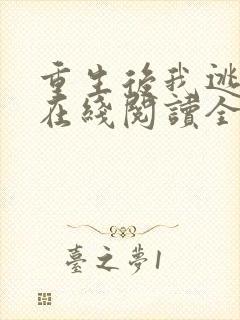 重生後我逃
在綫閱讀全
臺之夢1